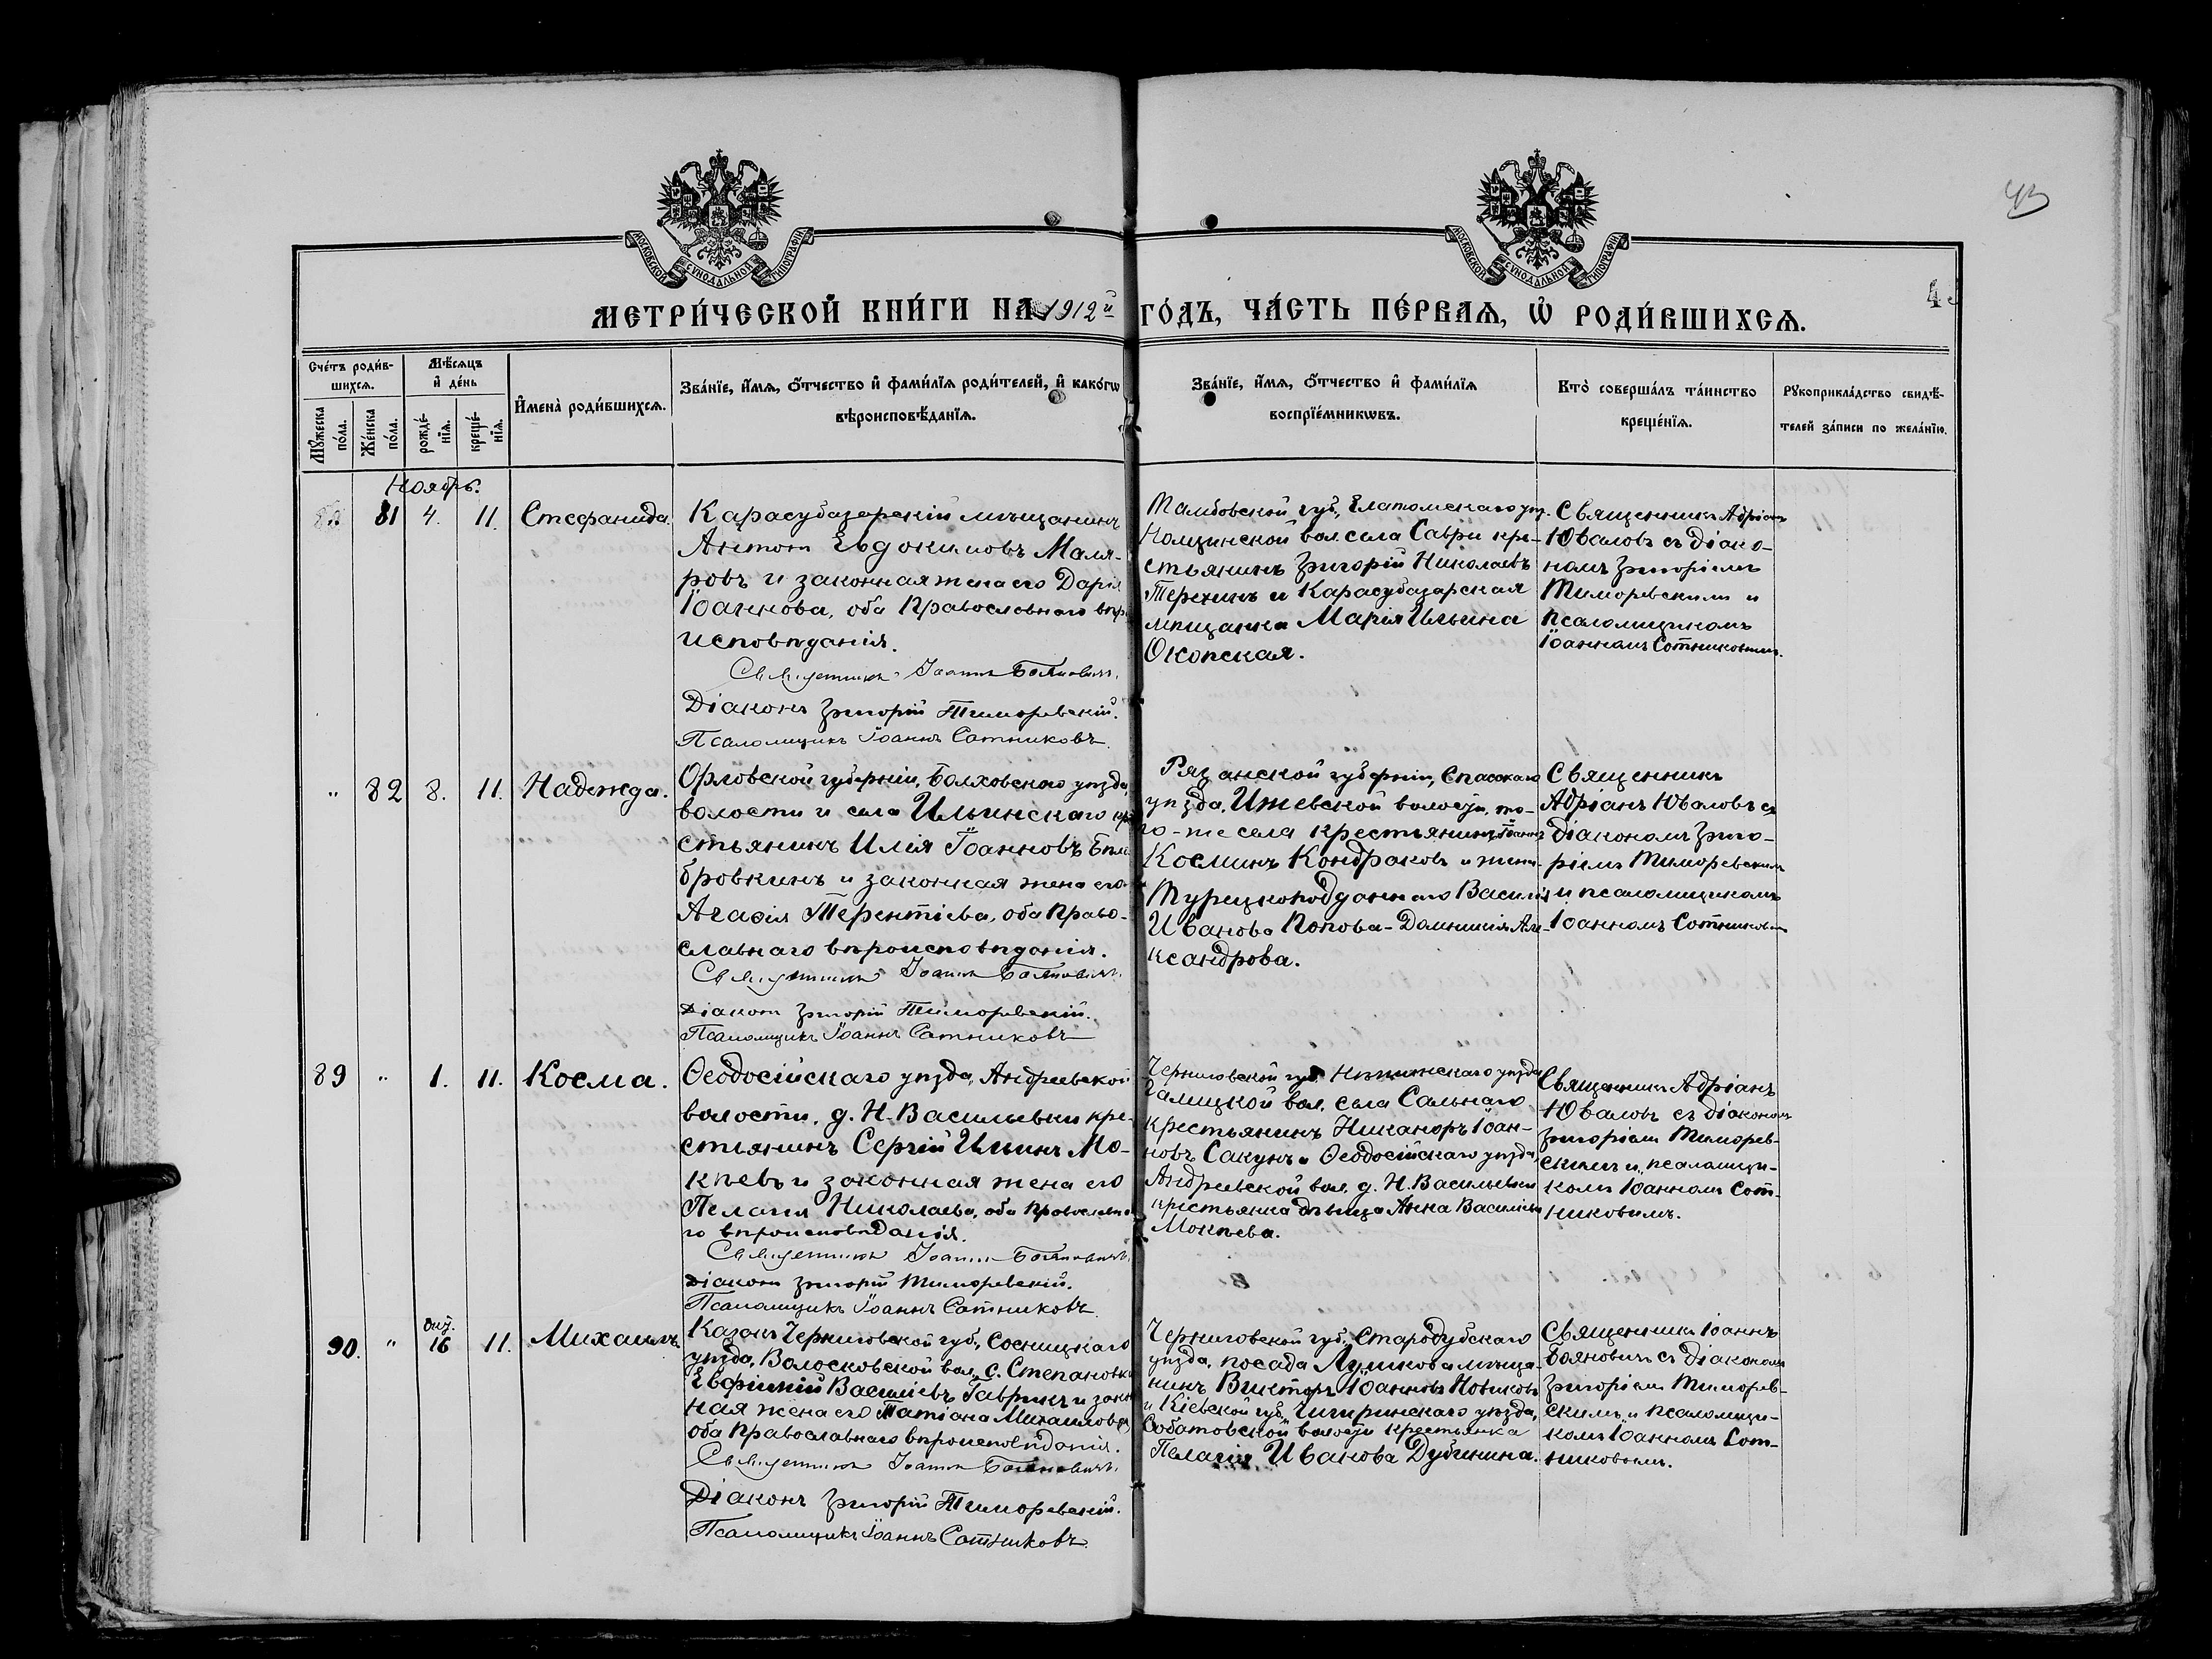 43
МОСКОВСКОЙ СѴНОДАЛЬНОЙ ТИПОГРАФІИ
МОСКОВСКОЙ СѴНОДАЛЬНОЙ ТИПОГРАФІИ
МЕТРИ́ЧЕСКОЙ КНИ́ГИ НА 1912й ГО́ДЪ, ЧА́СТЬ ПЕ́РВАѦ, Ѡ҆ РОДИ́ВШИХСѦ.
Сче́тъ роди́в-
шихсѧ.
Мꙋ́жеска по́ла.
Же́нска по́ла.
Мѣ́сѧцъ
и҆ де́нь
рожде́-
нїѧ.
креще́-
нїѧ.
И҆мена̀ роди́вшихсѧ.
Зва́нїе, и҆́мѧ, ѻ҆́тчество и҆ фами́лїѧ роди́телей, и҆ како́гѡ
вѣроисповѣ́данїѧ.
Зва́нїе, и҆́мѧ, ѻ҆́тчество и҆ фами́лїѧ
воспрїе́мникѡвъ.
Кто̀ соверша́лъ та́инство
креще́нїѧ.
Рꙋкоприкла́дство свидѣ́-
телей за́писи по жела́нїю.
Ноябрь.
81 4. 11. Стефанида.
Карасубазарскій мѣщанинъ
Антонъ Евдокимовъ Маля-
ровъ и законная жена его Дарія
Іоаннова, оба Православнаго вѣро
исповѣданія.
Священникъ Іоаннъ Бояновичъ.
Діаконъ Григорій Тиморевскій.
Псаломщикъ Іоаннъ Сотниковъ.
Тамбовской губ., Елатомскаго уѣз.
вол. села крe-
стьянинъ Григорій Николаевъ
Терехинъ и Карасубазарская
мѣщанка Марія Ильина
Окопская.
Священникъ Адріанъ
Юваловъ съ діако-
номъ Григоріемъ
Тиморевскимъ и
псаломщикомъ
Іоанномъ Сотниковымъ.
" 82 8. 11. Надежда.
Орловской губерніи, Болховскаго уѣзда,
волости и села Ильинскаго кре
стьянинъ Илія Іоанновъ
бровкинъ и законная жена его
Агафія Терентіева, оба Право-
славнаго вѣроисповѣданія.
Священникъ Іоаннъ Бояновичъ.
Діаконъ Григорій Тиморевскій.
Псаломщикъ Іоаннъ Сотниковъ
Рязанской губерніи, Спасскаго
уѣзда, Ижевской волости, то-
го-же села крестьянинъ Іоаннъ
Косминъ Кондраковъ и жена
Турецкоподданнаго Василія
Иванова Попова - Домникія Але-
ксандрова.
Священникъ
Адріанъ Юваловъ съ
діакономъ Григо-
ріемъ Тиморевскимъ
и псаломщикомъ
Іоанномъ Сотниковымъ
89 " 1. 11. Косма.
Ѳеодосійскаго уѣзда, Андреевской
волости, д. Н. Васильевки кре-
стьянинъ Сергій Ильинъ Мо-
кѣевъ и законная жена его
Пелагія Николаева, оба Православна
го вѣроисповѣданія.
Священникъ Іоаннъ Бояновичъ.
Діаконъ Григорій Тиморевскій.
Псаломщикъ Іоаннъ Сотниковъ.
Черниговской губ. Нѣжинскаго уѣзда
Галицкой вол. села Сальнаго
крестьянинъ Никаноръ Іоан-
новъ Сакунъ и Ѳеодосійскаго уѣзда,
Андреевской вол. д. Н. Васильевки
крестьянка дѣвица Анна Васильева
Мокѣева.
Священникъ Адріанъ
Юваловъ съ діакономъ
Григоріемъ Тиморев-
скимъ и псаломщи-
комъ Іоанномъ Сот-
никовымъ.
90. " окт. 16 11. Михаилъ
Казакъ Черниговской губ., Сосницкаго
уѣзда, Волосковской вол., с. Степановки
Евфимій Васильевъ Гаврикъ и закон
ная жена его Татіана Михаилова,
оба Православнаго вѣроисповѣданія.
Священникъ Іоаннъ Бояновичъ.
Діаконъ Григорій Тиморевскій.
Псаломщикъ Іоаннъ Сотниковъ
Черниговской губ., Стародубскаго
уѣзда, посада Лужкова мѣща-
нинъ Викторъ Іоанновъ Новиковъ
и Кіевской губ., Чигиринскаго уѣзда,
волости крестьянка
Пелагія Иванова Дубинина.
Священникъ Іоаннъ
Бояновичъ съ діакономъ
Григоріемъ Тиморев-
скимъ и псаломщи-
комъ Іоанномъ Сот-
никовымъ.